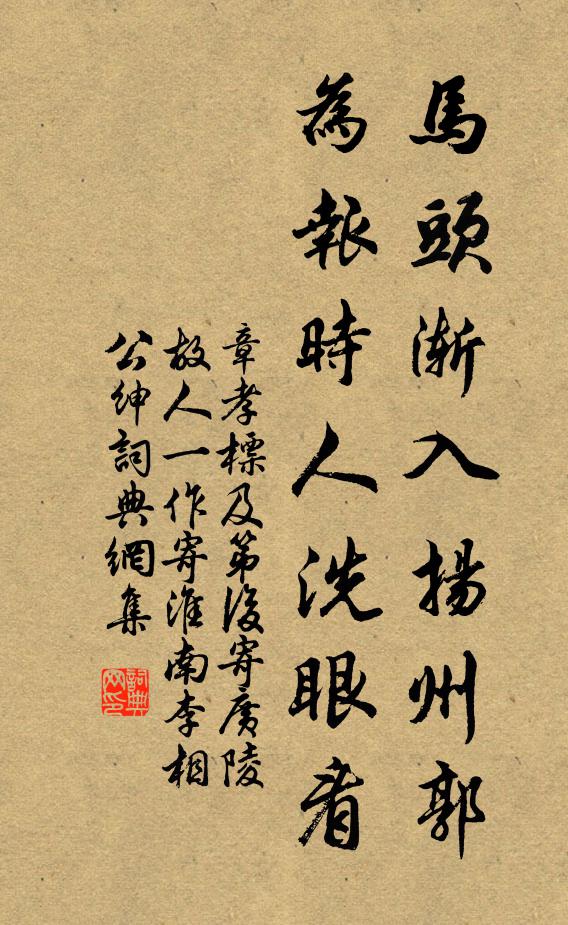 馬頭漸入揚州郭
為報時人洗眼看
章孝標及第後寄廣陵
故人一作寄淮南李相
公紳詞典網集
詞典
网印